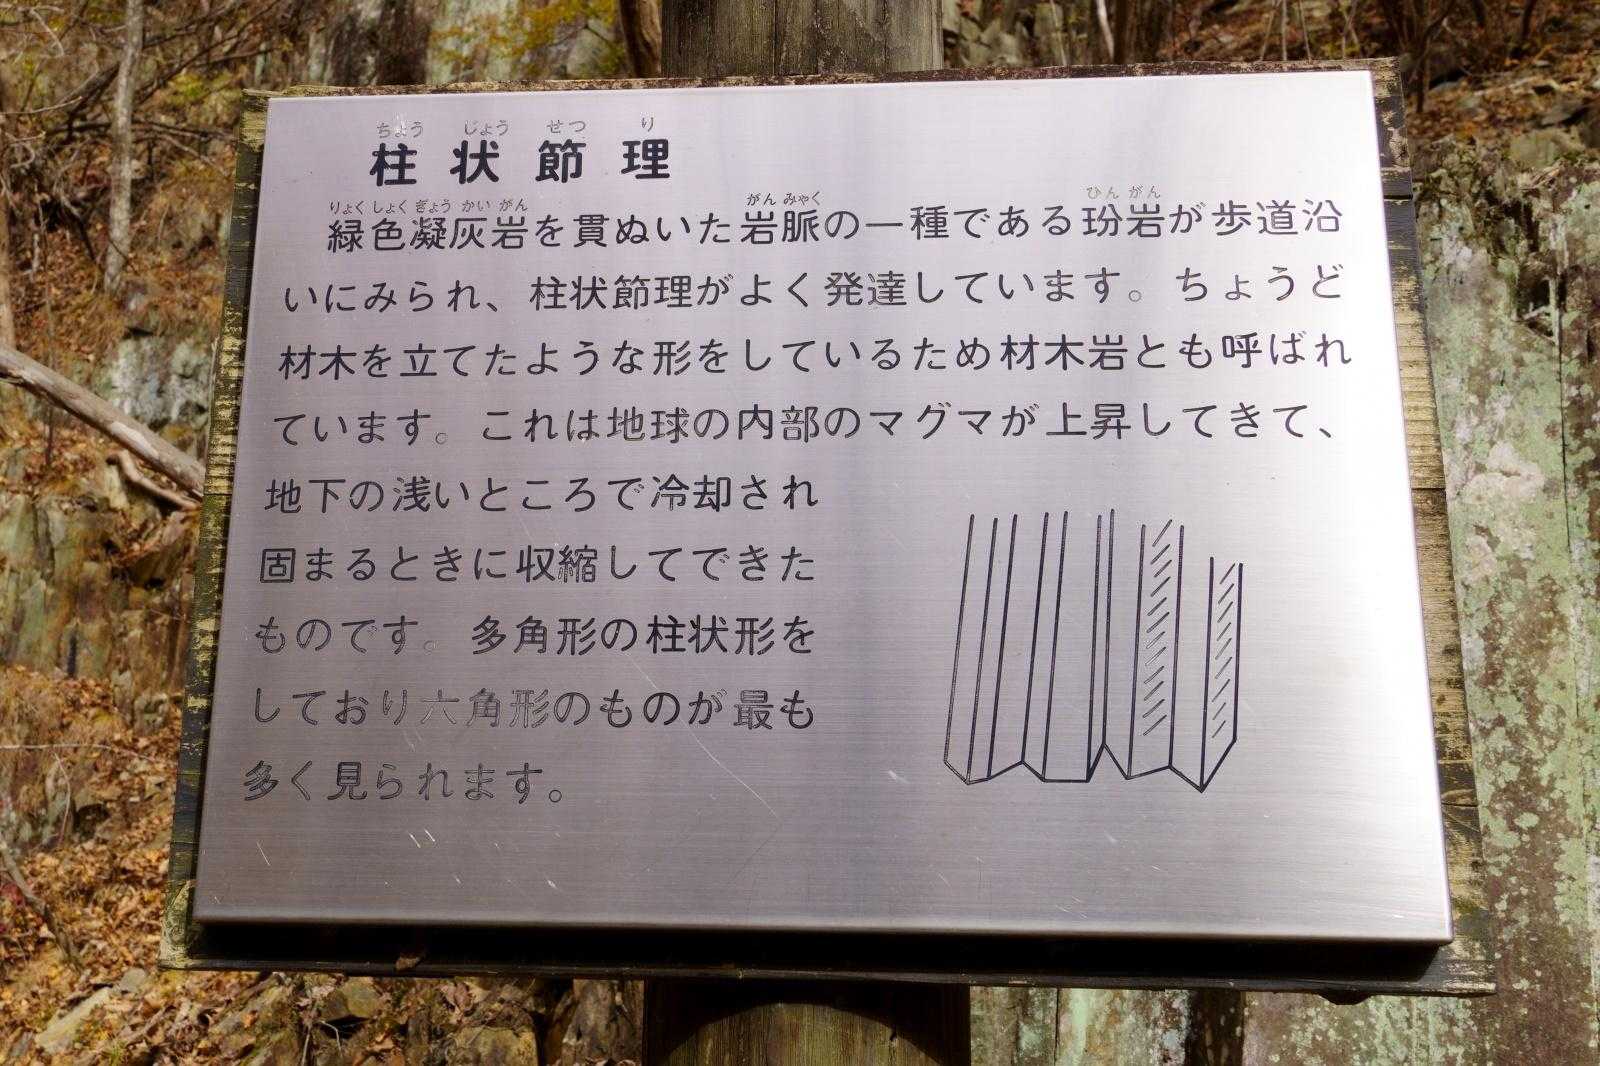 ちゅう じょう せつ り
柱状節理
りょくしょくぎょうかいがん がんみゃく ひんがん
緑色凝灰岩を貫ぬいた岩脈の一種である玢岩が歩道沿
いにみられ、柱状節理がよく発達しています。ちょうど
材木を立てたような形をしているため材木岩とも呼ばれ
ています。これは地球の内部のマグマが上昇してきて、
地下の浅いところで冷却され
固まるときに収縮してできた
ものです。多角形の柱状形を
しており六角形のものが最も
多く見られます。